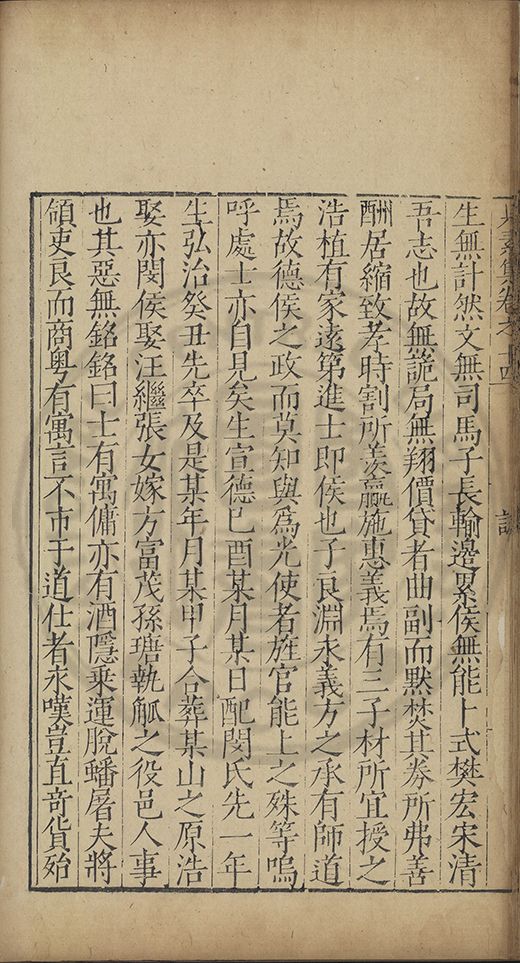 生無計然文無司馬子長輸邊累侯無能卜式樊宏宋清
吾志也故無詭局無翔價貸者曲副而默焚其券所弗善
酬居縮致孝時割所羨贏施惠義焉有三子材所宜授之
浩植有家遠第進士即侯也子良淵永義方之承有師道
焉故德侯之政而莫知與為光使者旌官能上之殊等嗚
呼處士亦自見矣生宣德己酉某月某日配閔氏先一年
生弘治癸丑先卒及是某年月某甲子合葬某山之原浩
娶亦閔侯娶汪繼張女嫁方富茂孫瑭執觚之役邑人事
也其惡無銘銘曰士有寓傭亦有酒隱乘運脫蟠屠夫將
領吏良而商粵有寓言不市于道仕者永嘆豈直奇貨殆